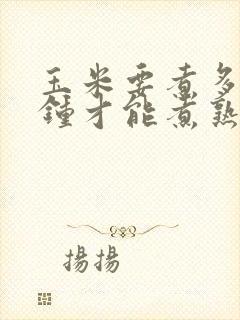 玉米要煮多
鍾才能煮熟
揚揚